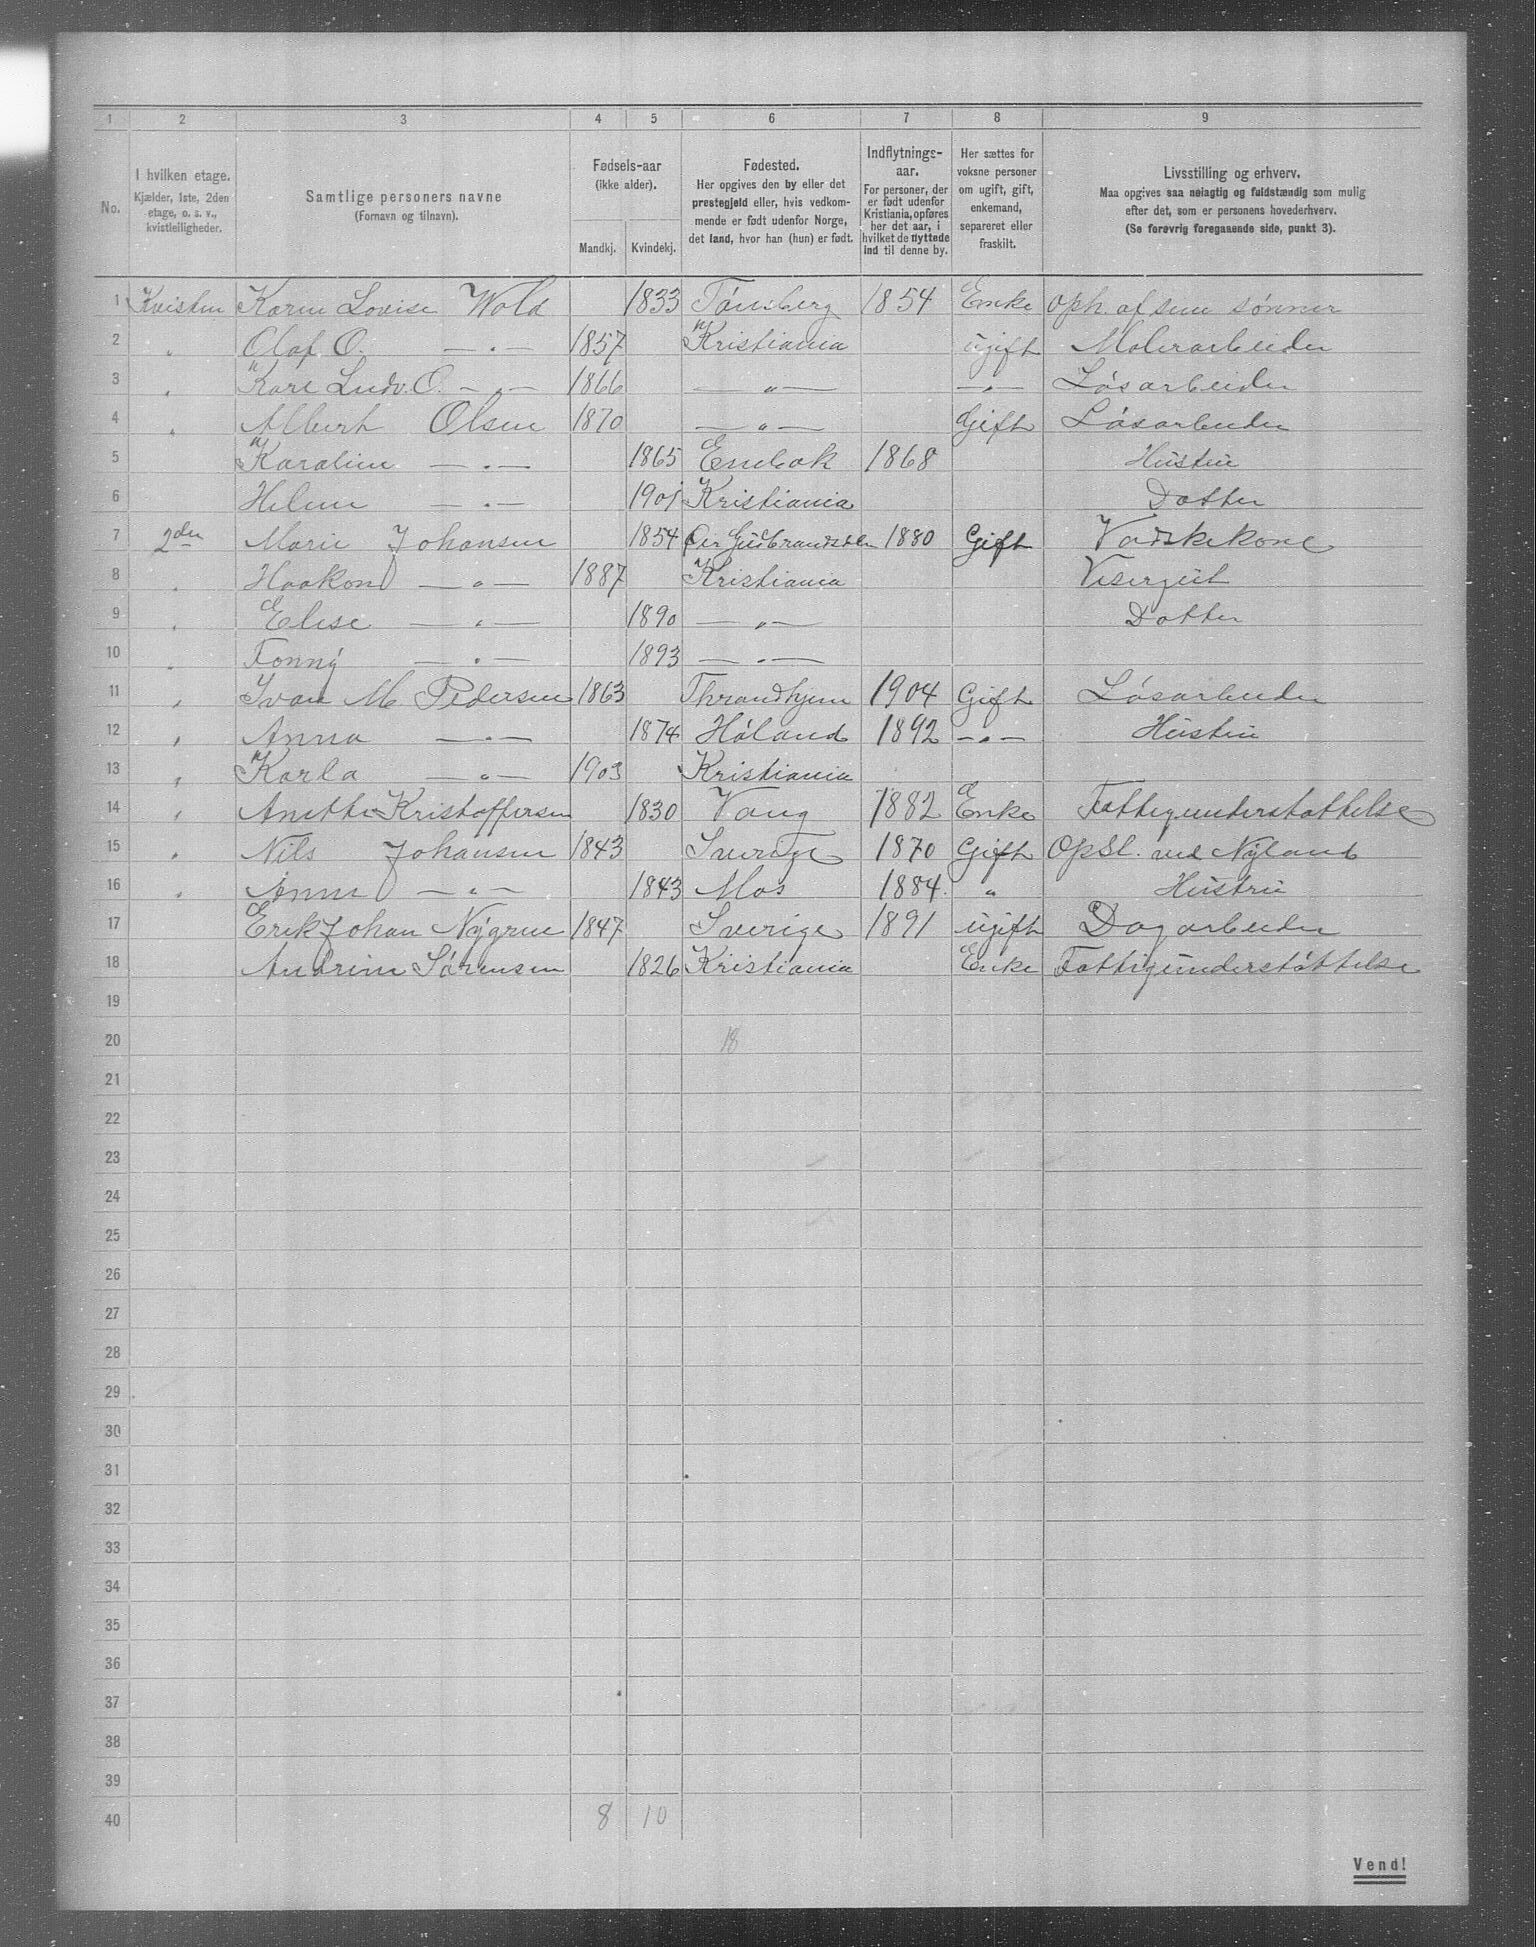 1 2 3 4 5 6 7 8 9
No.
I hvilken etage.
Kjælder, 1ste, 2den
etage, o. s. v.,
kvistleiligheder.
Samtlige personers navne
(Fornavn og tilnavn).
Fødsels-aar
(ikke alder).
Mandkj. Kvindekj.
Fødested.
Her opgives den by eller det
prestegjeld eller, hvis vedkom-
mende er født udenfor Norge,
det land, hvor han (hun) er født.
Indflytnings-
aar.
For personer, der
er født udenfor
Kristiania, opføres
her det aar, i
hvilket de flyttede
ind til denne by.
Her sættes for
voksne personer
om ugift, gift,
enkemand,
separeret eller
fraskilt.
Livsstilling og erhverv.
Maa opgives saa nøiagtig og fuldstændig som mulig
efter det, som er personens hovederhverv.
(Se forøvrig foregaaende side, punkt 3).
1 Kvisten Karen Lovise Wold 1833 Tønsberg 1854 Enke oph. af sine sønner
2 " Olaf O. — " — 1857 Kristiania ugift Malerarbeider
3 " Karl Ludv. O. — " — 1866 — " — — " — Løsarbeider
4 " Albert Olsen 1870 — " — Gift Løsarbeider
5 Karoline — " — 1865 Enebak 1868 Hustru
6 Helene — " — 1901 Kristiania Datter
7 2den Marie Johansen 1854 Øier Gudbrandsdalen 1880 Gift Vadskekone
8 " Haakon — " — 1887 Kristiania Visergut
9 " Elise — " — 1890 — " — Datter
10 " Fanny — " — 1893 — " —
11 " Ivan M Pedersen 1863 Thrandhjem 1904 Gift Løsarbeider
12 " Anna — " — 1874 Høland 1892 — " — Hustru
13 " Karla — " — 1903 Kristiania
14 " Anette Kristoffersen 1830 Vang 1882 Enke Fattigunderstøttelse
15 " Nils Johansen 1843 Sverige 1870 Gift Opsl. ved Nyland
16 " Anne — " — 1843 Mos 1884 " Hustru
17 Erik Johan Nygren 1847 Sverige 1891 ugift Dagarbeider
18 Andrine Sørensen 1826 Kristiania Enke Fattigunderstøttelse
19
20 18
21
22
23
24
25
26
27
28
29
30
31
32
33
34
35
36
37
38
39
40 8 10
Vend!